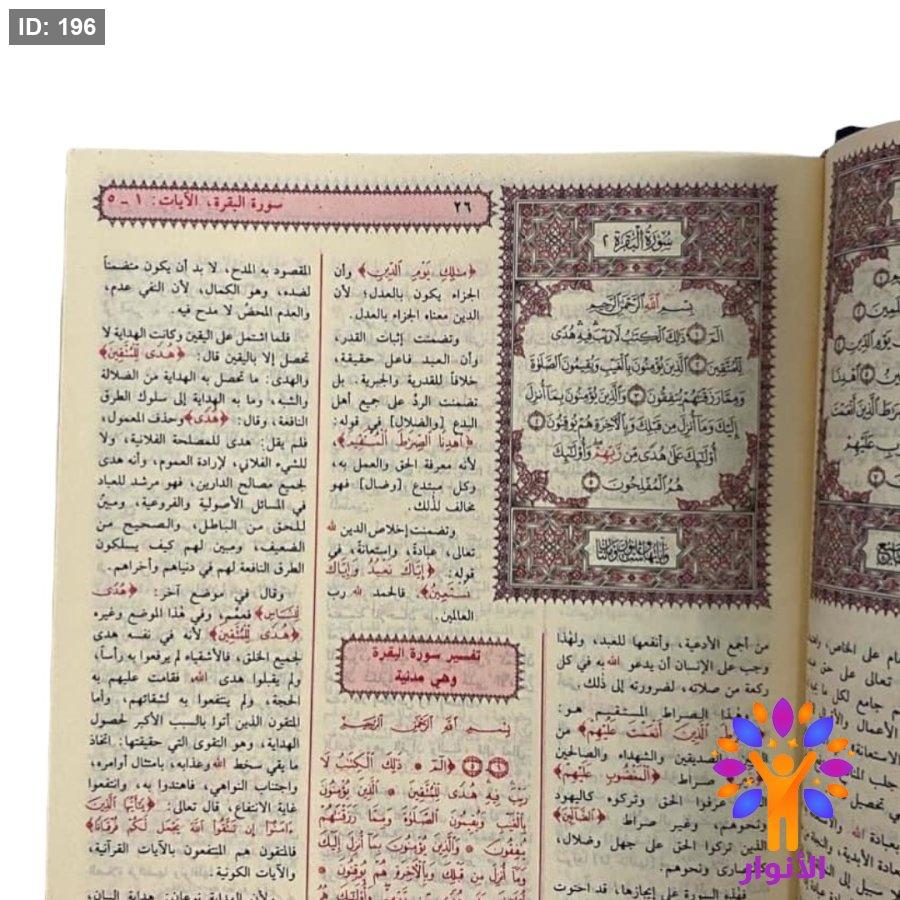 ID: 196
سورة البقرة، الآيات: ١ ـ ٥
٢٦
سُورَةُ الْبَقَرَةِ ٢
بِسْمِ اللَّهِ الرَّحْمَنِ الرَّحِيمِ
الٓمٓ ١ ذَلِكَ الْكِتَبُ لَا رَيْبَ فِيهِ هُدًى
لِلْمُتَّقِينَ ٢ الَّذِينَ يُؤْمِنُونَ بِالْغَيْبِ وَيُقِيمُونَ الصَّلَوٰةَ
وَمِمَّا رَزَقْنَهُمْ يُنفِقُونَ ٣ وَالَّذِينَ يُؤْمِنُونَ بِمَا أُنزِلَ
إِلَيْكَ وَمَا أُنزِلَ مِن قَبْلِكَ وَبِالْآخِرَةِ هُمْ يُوقِنُونَ ٤
أُوْلَئِكَ عَلَى هُدًى مِّن رَّبِّهِمْ وَأُوْلَئِكَ
هُمُ الْمُفْلِحُونَ ٥
من أجمع الأدعية، وأنفعها للعبد، ولهٰذا
وجب على الإنسان أن يدعو الله به في كل
ركعة من صلاته، لضرورته إلى ذٰلك.
وهذا الصراط المستقيم هو:
الَّذِينَ أَنْعَمْتَ عَلَيْهِمْ﴾ من
الصديقين والشهداء والصالحين
صراط ﴿الْمَغْضُوبِ عَلَيْهِمْ﴾
عرفوا الحق وتركوه كاليهود
ونحوهم، وغير صراط ﴿الضَّالِّينَ﴾
الذين تركوا الحق على جهل وضلال،
كالنصارى ونحوهم.
فهذه السورة على إيجازها، قد احتوت
﴿مَلِكِ يَوْمِ الدِّينِ﴾ وأن
الجزاء يكون بالعدل؛ لأن
الدين معناه الجزاء بالعدل.
وتضمنت إثبات القدر،
وأن العبد فاعل حقيقة،
خلافاً للقدرية والجبرية. بل
تضمنت الردّ على جميع أهل
البدع [والضلال] في قوله:
﴿اهْدِنَا الصِّرَطَ الْمُسْتَقِيمَ﴾،
لأنه معرفة الحق والعمل به،
وكل مبتدع [وضال] فهو
مخالف لذٰلك.
وتضمنت إخلاص الدين لله
تعالى، عبادةً، واستعانةً، في
قوله: ﴿إِيَّاكَ نَعْبُدُ وَإِيَّاكَ
نَسْتَعِينُ﴾. فالحمد لله رب
العالمين.
تفسير سورة البقرة
وهي مدنية
بِسْمِ اللَّهِ الرَّحْمَنِ الرَّحِيمِ
﴿الٓمٓ ۞ ذَلِكَ الْكِتَبُ لَا
رَيْبَ فِيهِ هُدًى لِلْمُتَّقِينَ ۞ الَّذِينَ يُؤْمِنُونَ
بِالْغَيْبِ وَيُقِيمُونَ الصَّلَوٰةَ وَمِمَّا رَزَقْنَهُمْ
يُنفِقُونَ ۞ وَالَّذِينَ يُؤْمِنُونَ بِمَا أُنزِلَ إِلَيْكَ
وَمَا أُنزِلَ مِن قَبْلِكَ وَبِالْآخِرَةِ هُمْ يُوقِنُونَ ۞
المقصود به المدح، لا بد أن يكون متضمناً
لضده، وهو الكمال، لأن النفي عدم،
والعدم المحض لا مدح فيه.
فلما اشتمل على اليقين وكانت الهداية لا
تحصل إلا باليقين قال: ﴿هُدًى لِلْمُتَّقِينَ﴾
والهدى: ما تحصل به الهداية من الضلالة
والشبه، وما به الهداية إلى سلوك الطرق
النافعة، وقال: ﴿هُدًى﴾ وحذف المعمول،
فلم يقل: هدى للمصلحة الفلانية، ولا
للشيء الفلاني، لإرادة العموم، وأنه هدى
لجميع مصالح الدارين، فهو مرشد للعباد
في المسائل الأصولية والفروعية، ومبينٌ
للحق من الباطل، والصحيح من
الضعيف، ومبين لهم كيف يسلكون
الطرق النافعة لهم في دنياهم وأخراهم.
وقال في موضع آخر: ﴿هُدًى
لِلنَّاسِ﴾ فعمّم، وفي هٰذا الموضع وغيره
﴿هُدًى لِلْمُتَّقِينَ﴾ لأنه في نفسه هدى
لجميع الخلق، فالأشقياء لم يرفعوا به رأساً،
ولم يقبلوا هدى الله، فقامت عليهم به
الحجة، ولم ينتفعوا به لشقائهم، وأما
المتقون الذين أتوا بالسبب الأكبر لحصول
الهداية، وهو التقوى التي حقيقتها: اتخاذ
ما يقي سخط الله وعذابه، بامتثال أوامره،
واجتناب النواهي، فاهتدوا به، وانتفعوا
غاية الانتفاع، قال تعالى: ﴿يَأَيُّهَا الَّذِينَ
ءَامَنُوا إِن تَتَّقُوا اللَّهَ يَجْعَل لَّكُمْ فُرْقَانًا﴾
فالمتقون هم المنتفعون بالآيات القرآنية،
والآيات الكونية
الأنوار